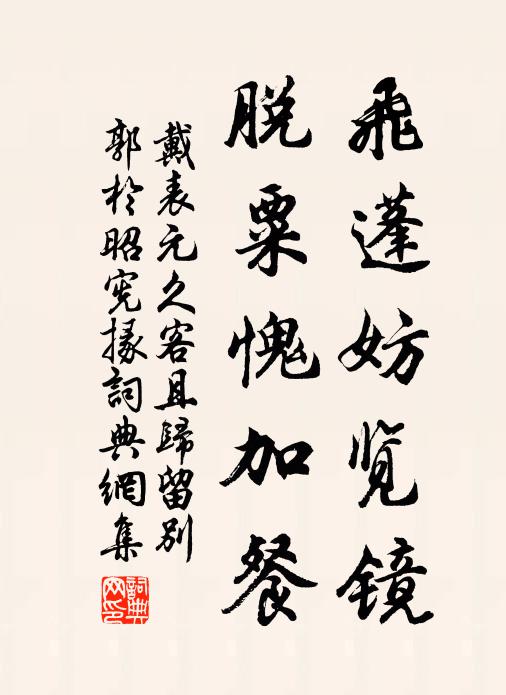 飛蓬妨览鏡
脱粟愧加餐
戴表元久客且歸留别
郭於昭宪掾詞典網集
詞典网印